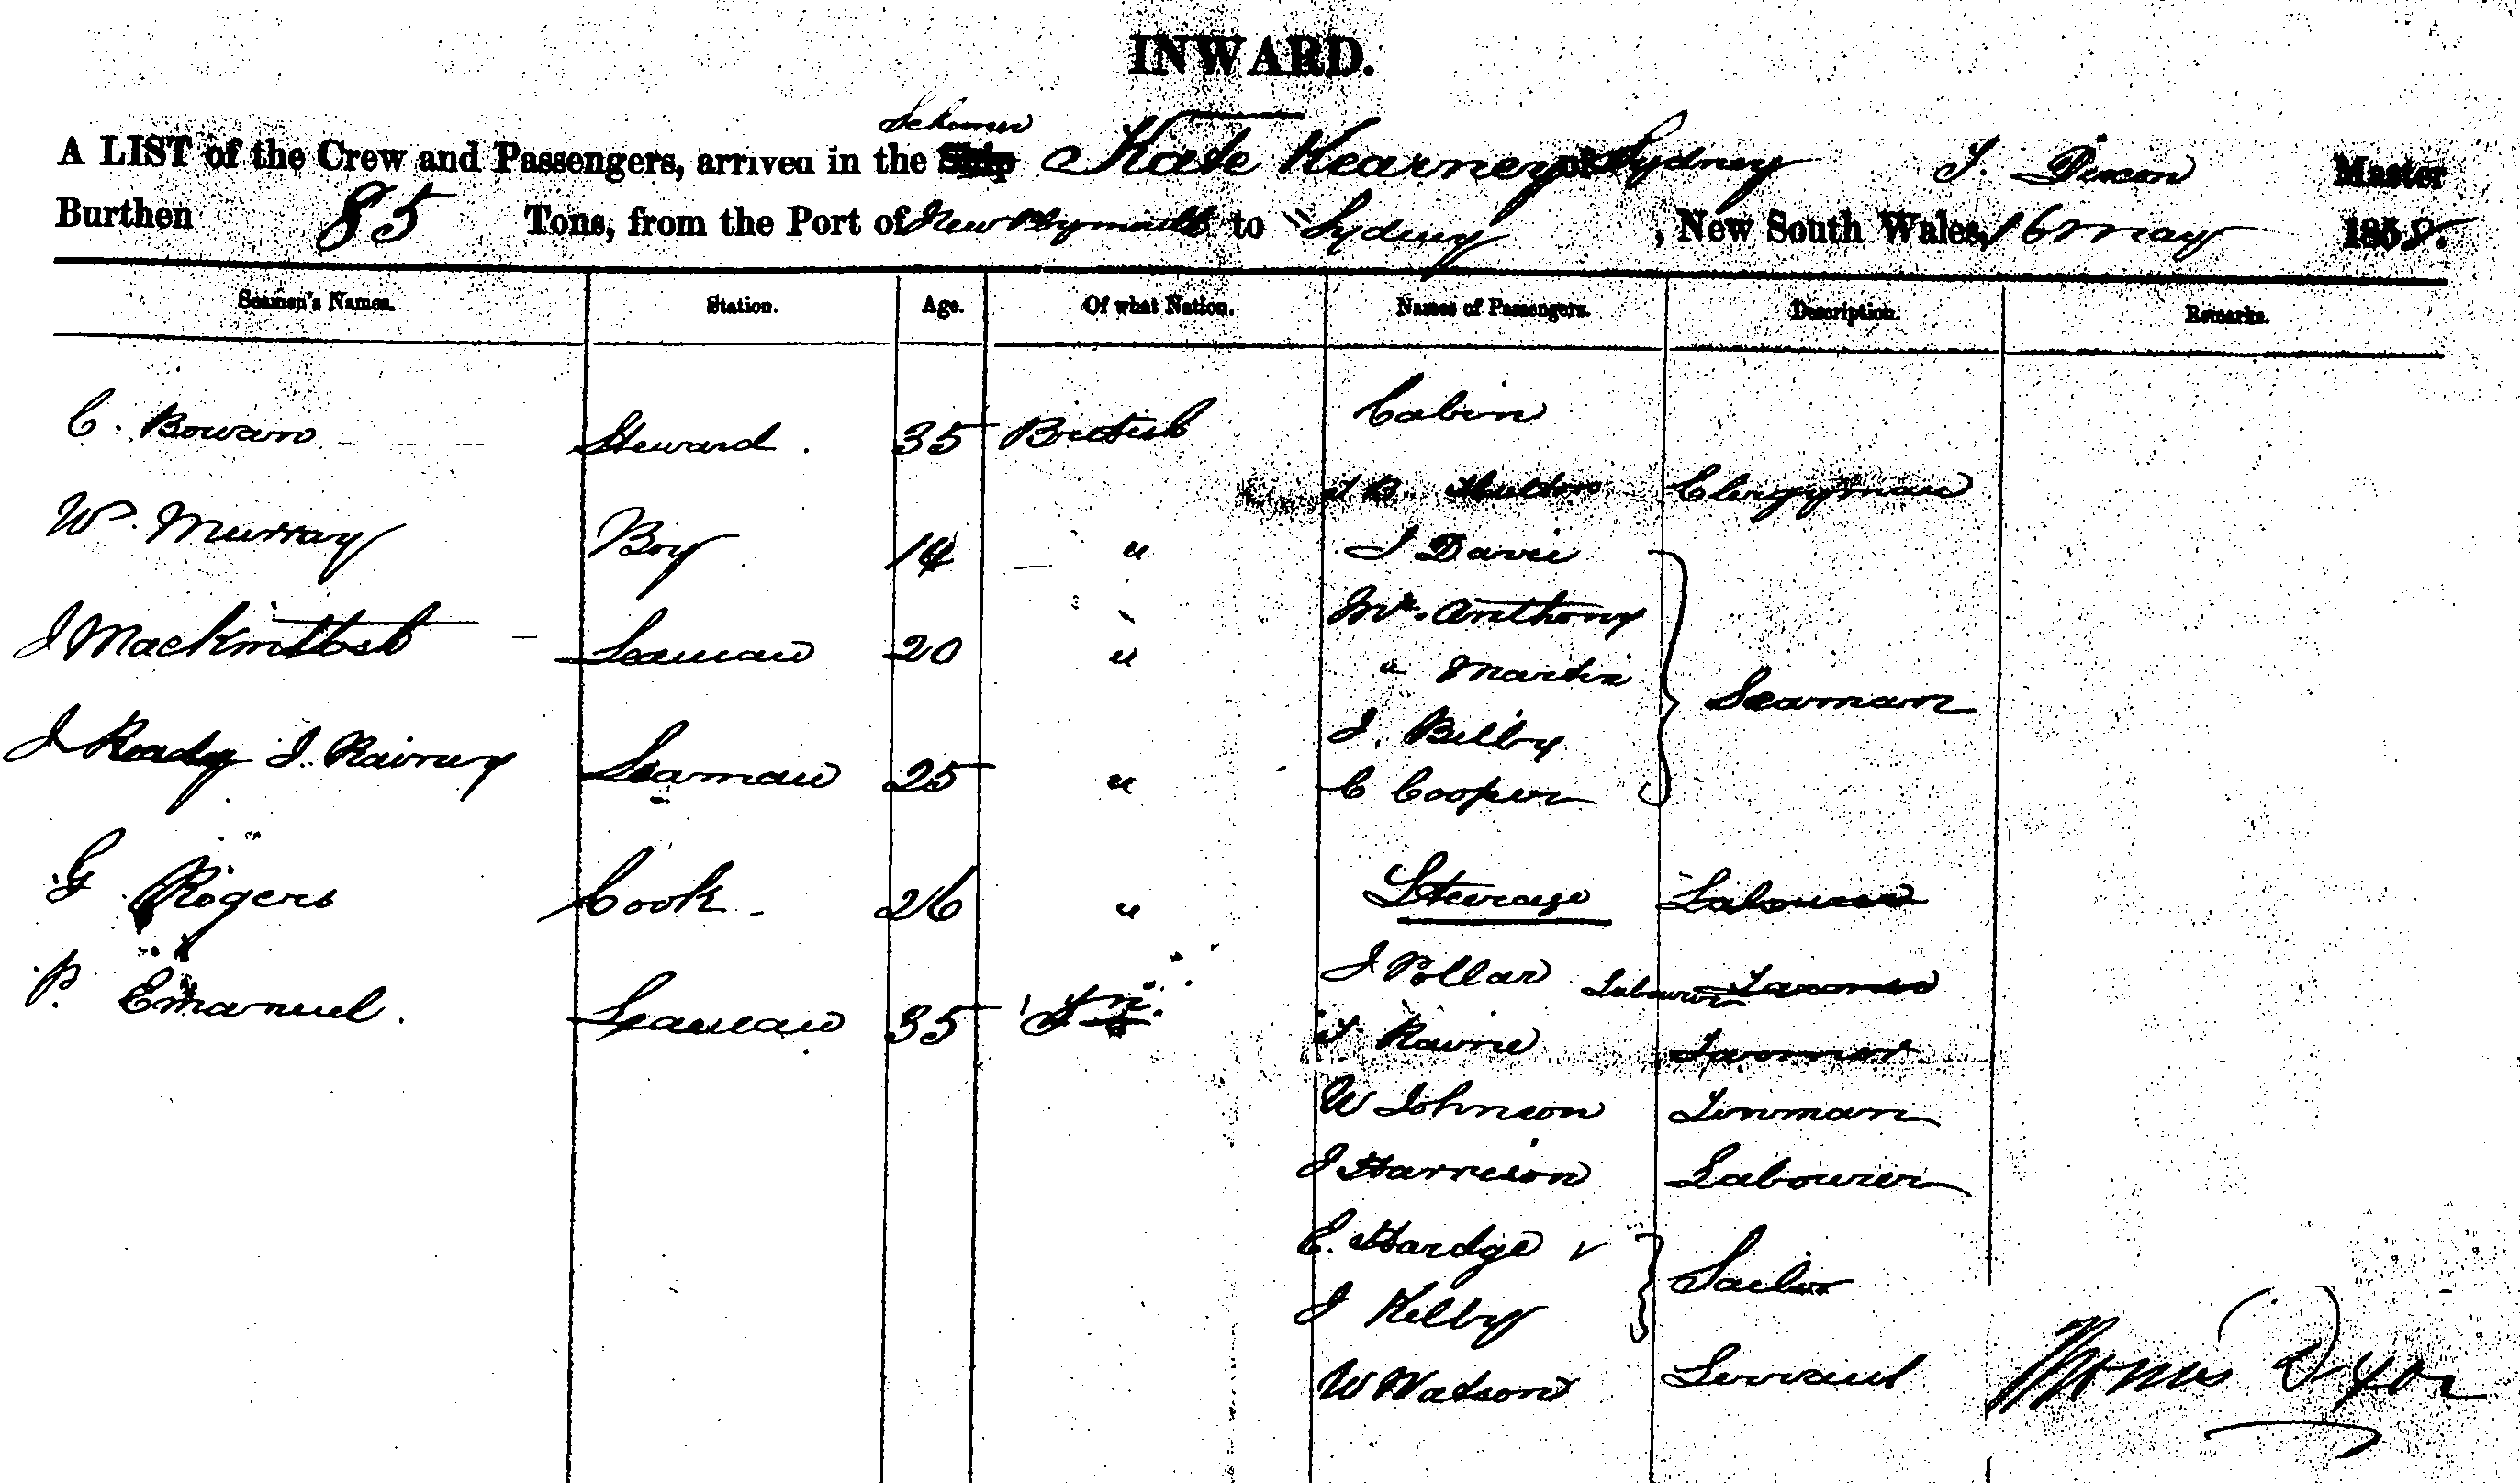 INWARD.
Schooner
A LIST of the Crew and Passengers, arrived in the Ship Kate Kearney of Sydney T. Dixon Master
Burthen 85 Tons, from the Port of New Plymouth to Sydney, New South Wales, 16 May 1858.
Seamen's Names. Station. Age. Of what Nation. Names of Passengers. Description. Remarks.
Cabin
C. Bowan Steward. 35 British
Clergyman
W. Murray Boy 14 " J Davie
Mr. Anthony
J Mackintosh Seaman 20 " " Martin
Seaman
J Ready J. Rainey Seaman 25 " J. Bilby
C Cooper
G Rogers Cook - 26 " Steerage Labourer
J Pollar Labourer
P. Emanuel. Seaman 35
T Rawne
W Johnson Tinman
J Harrison Labourer
E. Hardge
Sailor
J Kelby
W Watson Servant
Thomas Dixon